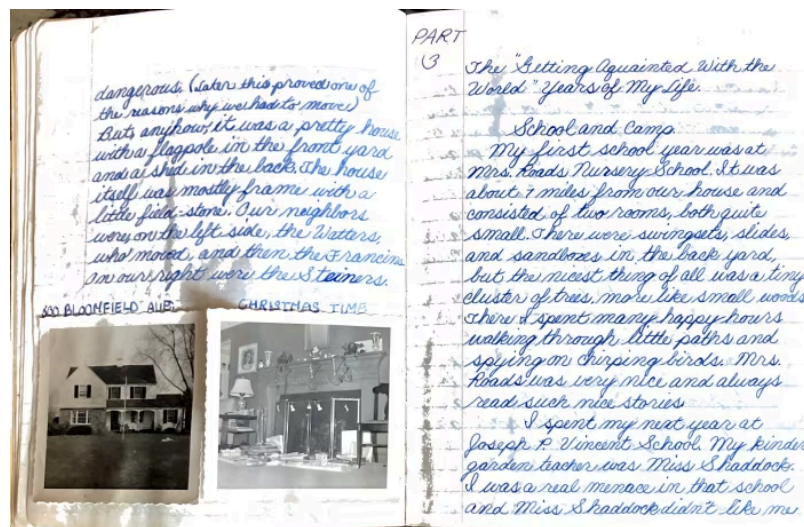 dangerous. (Later this proved one of
the reasons why we had to move)
But, anyhow, it was a pretty house
with a flagpole in the front yard
and a shed in the back. The house
itself was mostly frame with a
little field-stone. Our neighbors
were on the left side, the Watters,
who moved, and then the Francins
on our right were the Steiners.
BLOOMFIELD AVE.
CHRISTMAS TIME
PART
3
The "Getting Aquainted With the
World" Years of My Life.
School and Camp
My first school year was at
Mrs. Roads Nursery School. It was
about 7 miles from our house and
consisted of two rooms, both quite
small. There were swingsets, slides,
and sandboxes in the back yard,
but the nicest thing of all was a tiny
cluster of trees, more like small woods
There I spent many happy hours
walking through little paths and
spying on chirping birds. Mrs.
Roads was very nice and always
read such nice stories
I spent my next year at
Joseph P. Vincent School. My kinder
garden teacher was Miss Shaddock.
I was a real menace in that school
and Miss Shaddock didn't like me